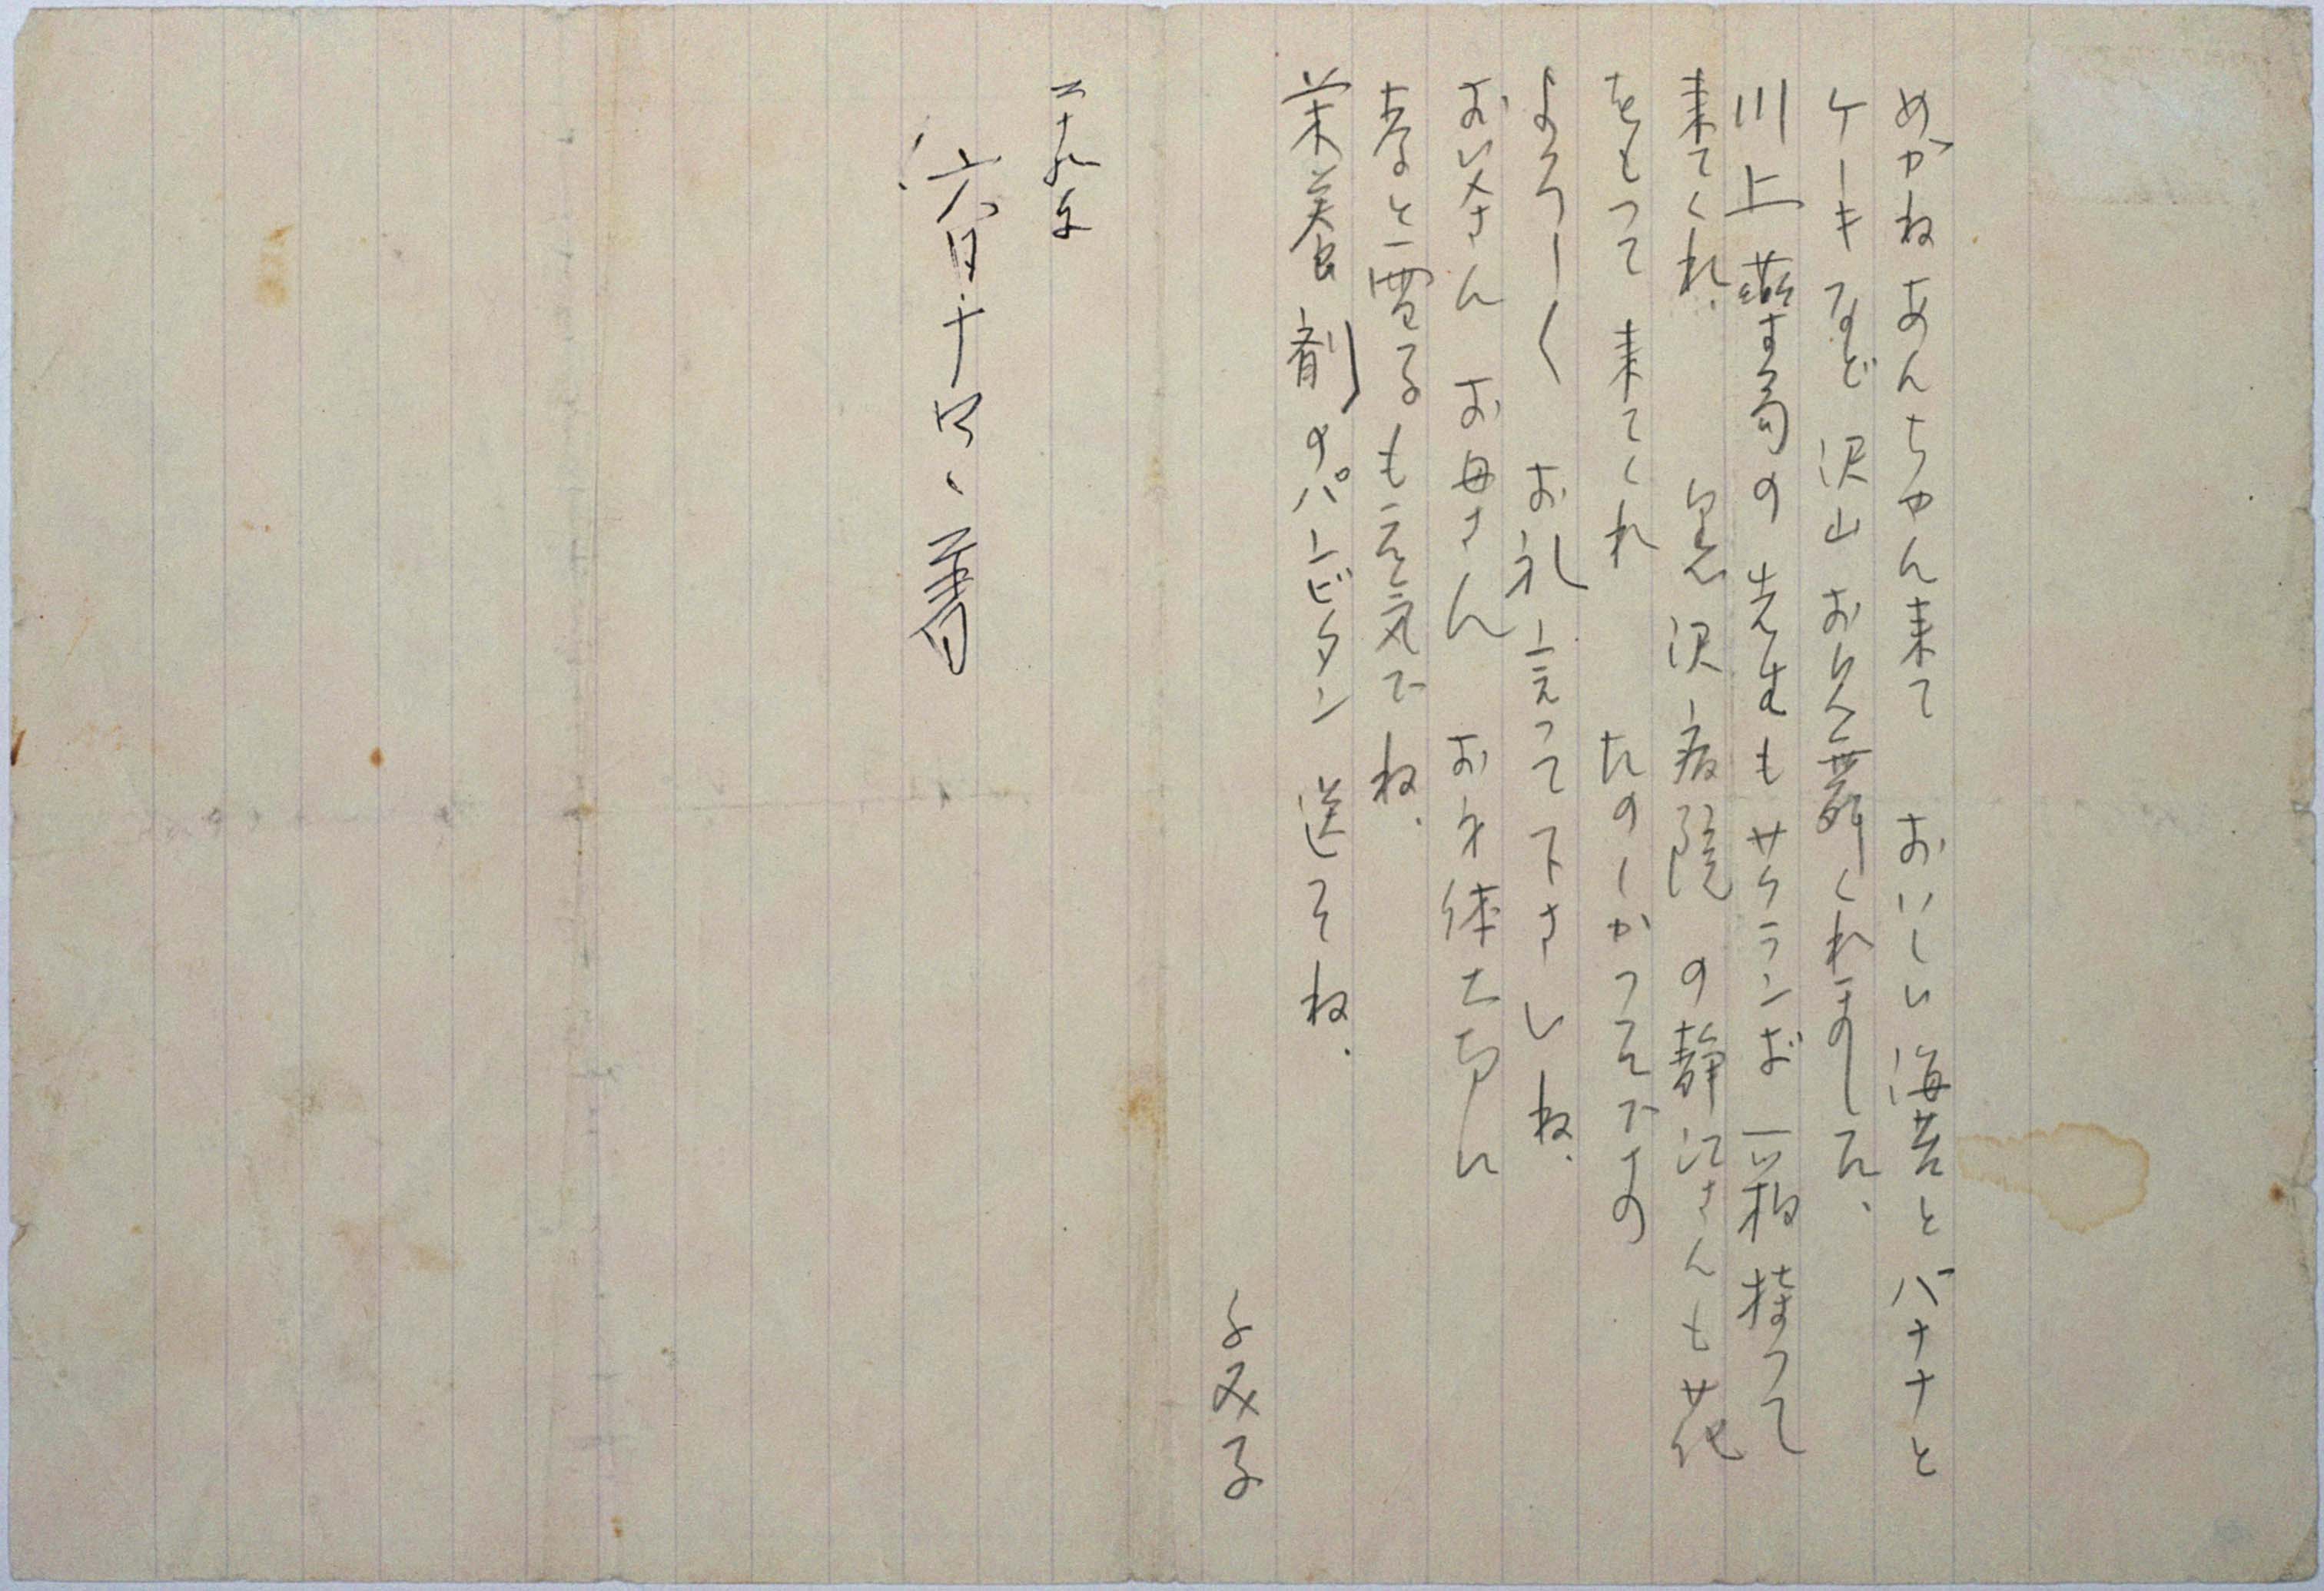 めがねあんちゃん来て おいしい海苔とバナナと
ケーキなど沢山お見舞くれました、
川上薬局の先生もサクランボ一箱持って
来てくれ、 黒沢病院の静江さんも花
をもって来てくれ たのしかつたですの
よろしくお礼言って下さいね、
お父さんお母さん お身体大切に
孝と雪子も元気でね、
栄養剤のパンビタン 送てね、
とみ子
二十九年
六月十四日着